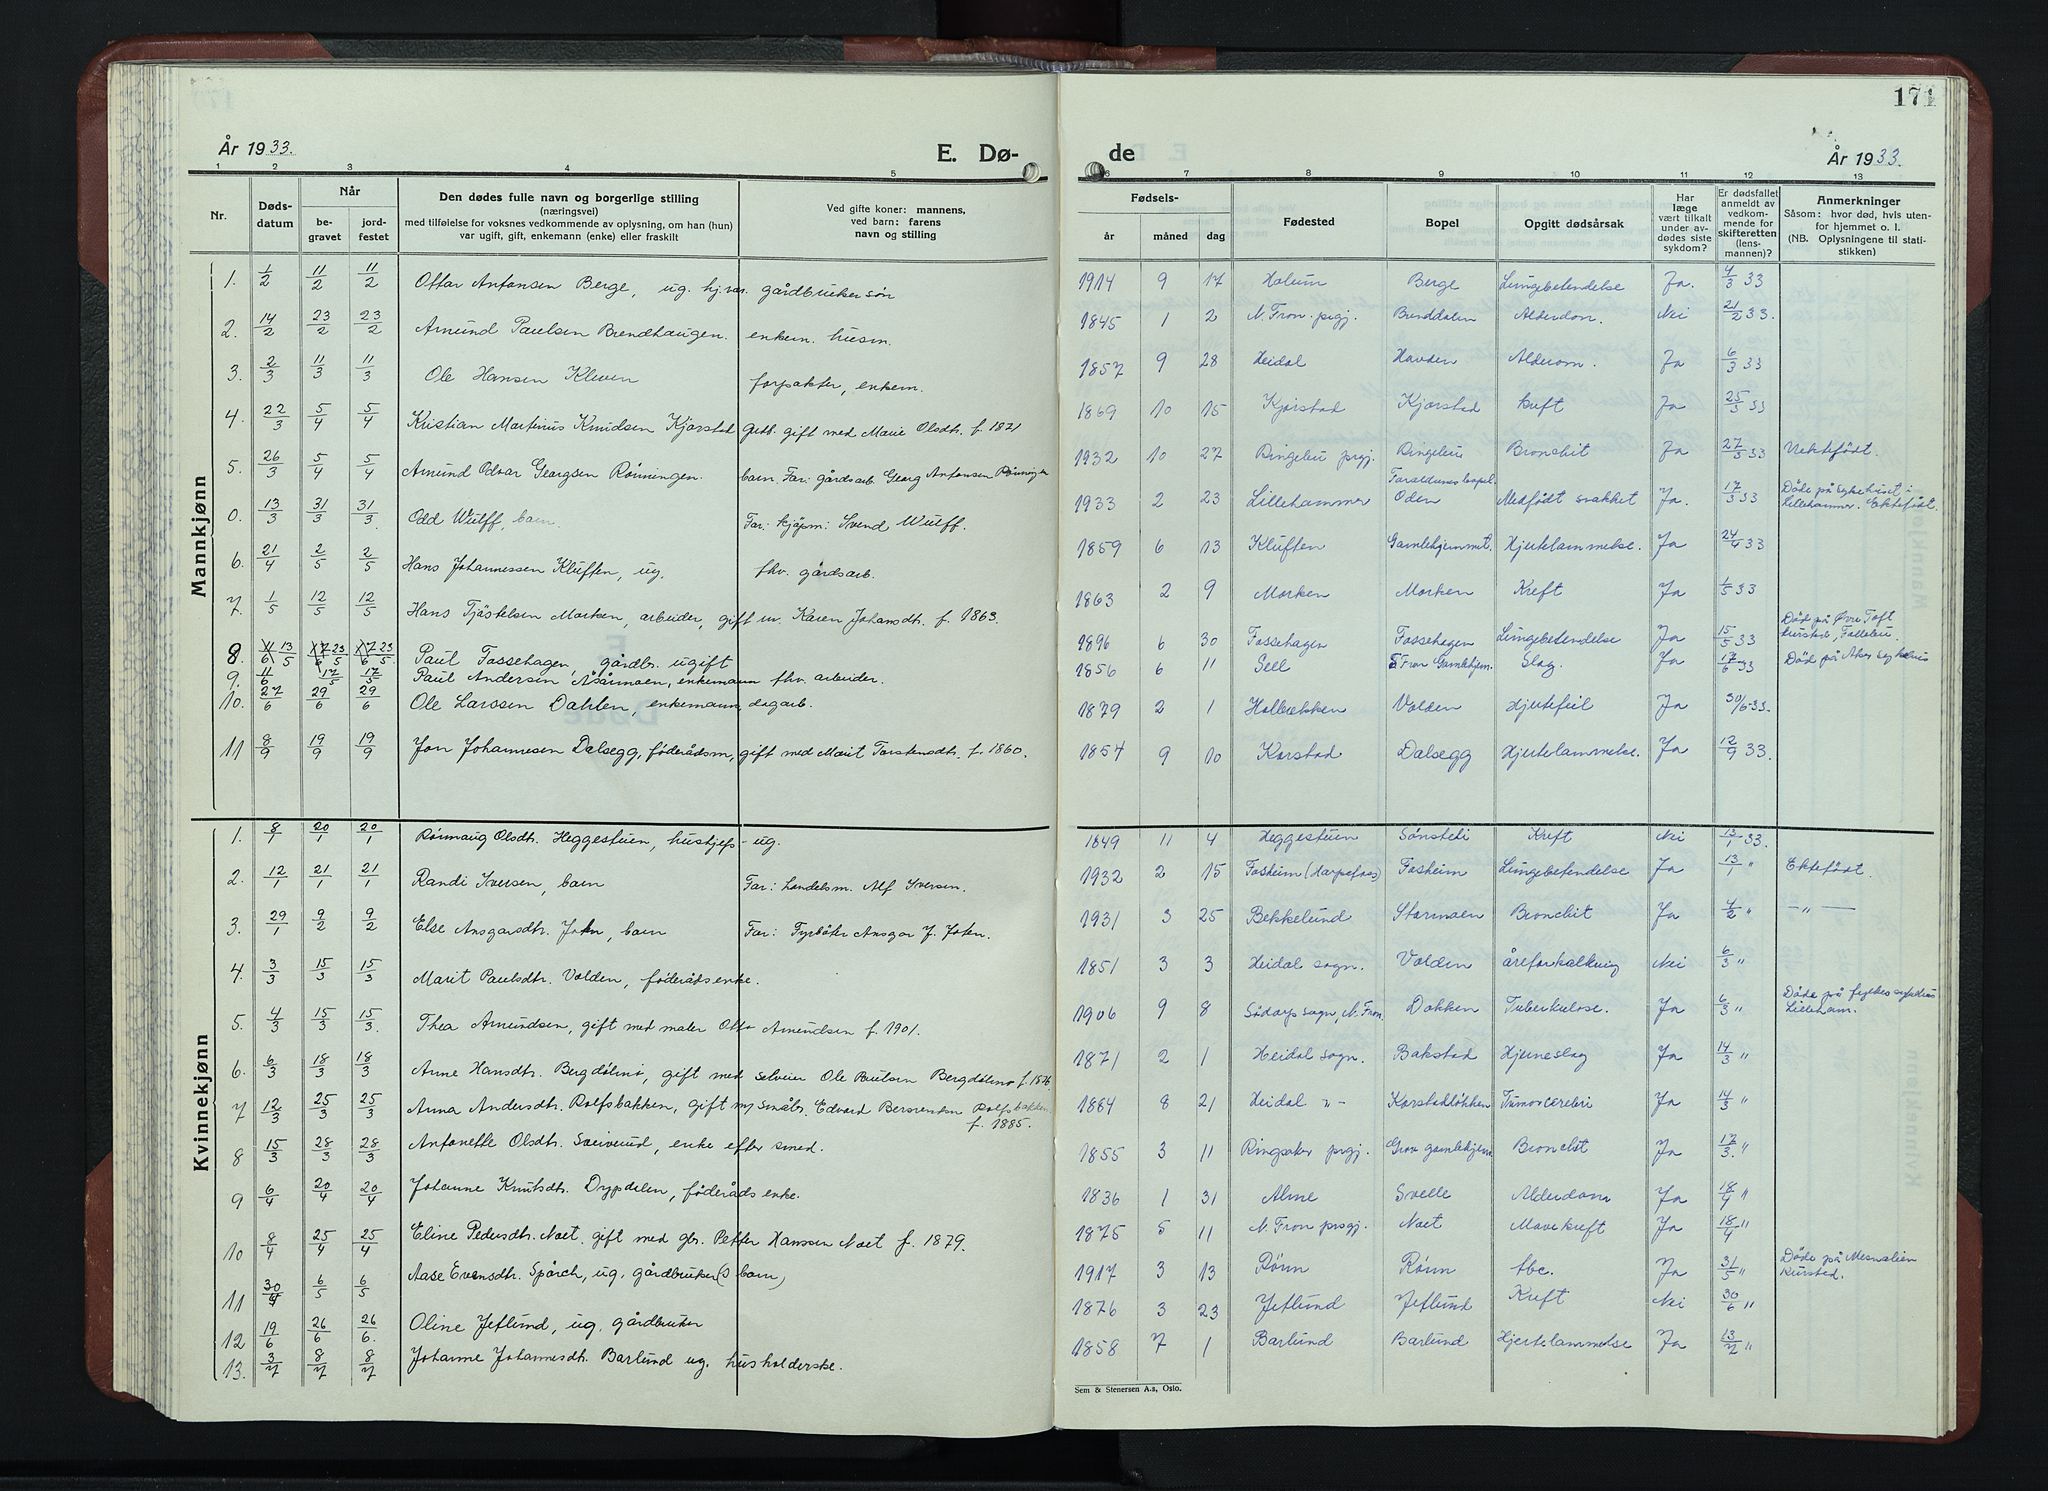 År 1933.
E. Dø-
1 2 3 4 5
Nr.
Døds-
datum
Når
be-
gravet
jord-
festet
Den dødes fulle navn og borgerlige stilling
(næringsvei)
med tilføielse for voksnes vedkommende av oplysning, om han (hun)
var ugift, gift, enkemann (enke) eller fraskilt
Ved gifte koner: mannens,
ved barn: farens
navn og stilling
Mannkjønn
1. 1/2 11/2 11/2 Ottar Antonsen Berge, ug. hj.vær. gårdbruker søn
2. 14/2 23/2 23/2 Amund Paulsen Brendhaugen. enkem. husm.
3. 2/3 11/3 11/3 Ole Hansen Kleven forpakter, enkem.
4. 22/3 5/4 5/4 Kristian Martinius Knudsen Kjørstad gutb. gift med Marie Olsdtr. f. 1871
5. 26/3 5/4 5/4 Amund Odvar Georgsen Rønningen. barn. Far: gårdsarb. Georg Antonsen Rønningen
0. 13/3 31/3 31/3 Odd Wulff, barn. Far: kjøpm: Svend Wulff.
6. 21/4 2/5 2/5 Hans Johannessen Kluften, ug. fhv. gårdsarb.
7. 1/5 12/5 12/5 Hans Tjøstelsen Morken, arbeider, gift m. Karen Johansdtr. f. 1863.
8. 13/5 23/5 23/5 Paul Fossehagen, gårdbr. ugift
9. 11/6 17/5 17/5 Paul Andersen Åsårmoen, enkemann fhv. arbeider.
10. 27/6 29/6 29/6 Ole Larssen Dahlen, enkemann, dagarb.
11 8/9 19/9 19/9 Jon Johannesen Dalsegg, føderådsm, gift med Marit Torstensdtr. f. 1860.
Kvinnekjønn
1. 8/1 20/1 20/1 Rønnaug Olsdtr. Heggestuen, hustjefs - ug.
2. 12/1 21/1 21/1 Randi Iversen, barn Far: handelsm. Alf Iversen.
3. 29/1 9/2 9/2 Else Ansgarsdtr. Joten, barn Far: Fyrbøter Ansgar J. Joten.
4. 3/3 15/3 15/3 Marit Paulsdtr. Volden, føderådsenke.
5. 4/3 15/3 15/3 Thea Amundsen, gift med maler Otto Amundsen f. 1901.
6. 6/3 18/3 18/3 Anne Hansdtr. Bergdølmo, gift med selveier Ole Paulsen Bergdølmo f. 1876
7 12/3 25/3 25/3 Anna Andersdtr. Rolfsbakken, gift m/ småbr. Edvard Berentsen Rolfsbakken
f. 1885.
8 15/3 28/3 28/3 Antonette Olsdtr. Sveiverud, enke efter smed.
9 6/4 20/4 20/4 Johanne Knutsdtr. Drypdalen, føderåds enke.
10 8/4 25/4 25/4 Eline Pedersdtr. Noet, gift med gbr. Petter Hanssen Noet f. 1879.
11 30/4 6/5 6/5 Aase Evensdtr. Spørch, ug. gårdbruker(s barn)
12 19/6 26/6 26/6. Oline Jetlund, ug. gårdbruker
13. 3/7 8/7 8/7 Johanne Johannesdtr. Barlund ug. husholderske.
171
de
År 1933.
6 7 8 9 10 11 12 13
Fødsels-
år måned dag
Fødested
Bopel
Opgitt dødsårsak
Har
læge
vært tilkalt
under av-
dødes siste
sykdom?
Er dødsfallet
anmeldt av
vedkom-
mende for
skifteretten
(lens-
mannen)?
Anmerkninger
Såsom: hvor død, hvis uten-
for hjemmet o. l.
(NB. Oplysningene til stati-
stikken)
1914 9 17 Holum Berge Lungebetendelse Ja. 4/3 33
1845 1 2 N. Fron. prgj. Brenddalen Alderdom. Nei 21/2 33.
1857 9 28 Heidal Havden Alderom. Ja 6/3 33
1869 10 15 Kjørstad Kjørstad kreft Ja 25/3 33
1932 10 27 Ringebu prgj. Ringebu Bronchit Ja 27/3 33 Uektefødt.
1933 2 23 Lillehammer Foreldrenes bopel Oden Medfødt svakhet Ja. 17/3 33 Døde på sykehuset i
Lillehammer. Ektefødt.
1859 6 13 Kluften Gamlehjemmet. Hjertelammelse. Ja 24/4 33
1863 2 9 Morken Morken Kreft Ja 1/5 33
1896 6 30 Fossehagen Fossehagen Lungebetendelse Ja 15/5 33 Døde på Øvre Toft
kursted, Follebu.
1856 6 11 Sell S Fron Gamlehjem. Slag. Ja 17/6 33 Død på Aker sykehus
1879 2 1 Holbekken Volden Hjertefeil Ja 30/6-33.
1854 9 10 Korstad Dalsegg Hjertelammelse. Ja 12/9 33.
1849 11 4 Heggestuen Sønsteli Kreft Nei 13/1 33.
1932 2 15 Fosheim (Harpefoss) Fosheim Lungebetendelse Ja 13/1 " Ektefødt.
1931 3 25 Bekkelund Stormoen Bronchit Ja 4/2 " — " —
1851 3 3 Heidal sogn. Volden åreforkalkning Nei 6/3 "
1906 9 8 Sødorp sogn, N. Fron. Dokken Tuberkulose. Ja 6/3 " Døde på fylkessykehus
Lilleham.
1871 2 1 Heidal sogn. Bakstad Hjerneslag Ja 14/3 "
1884 8 21 Heidal "- Korstadløkken Tumor cerebri Ja 14/3 "
1855 3 11 Ringsaker prgj. Fron gamlehjem Bronchit Ja 17/3. "
1836 1 31 Alme Svelle Alderdom Ja 18/4 "
1875 5 11 N. Fron prsgj. Noet Mavekreft Ja 18/4 "
1917 3 13 Rønn Rønn tbc. Ja 31/5 " Døde på Mesnalien
Kursted.
1876 3 23 Jetlund Jetlund Kreft Nei 30/6 "
1858 7 1 Barlund Barlund Hjertelammelse Ja 13/7 "
Sem & Stenersen A.s, Oslo.